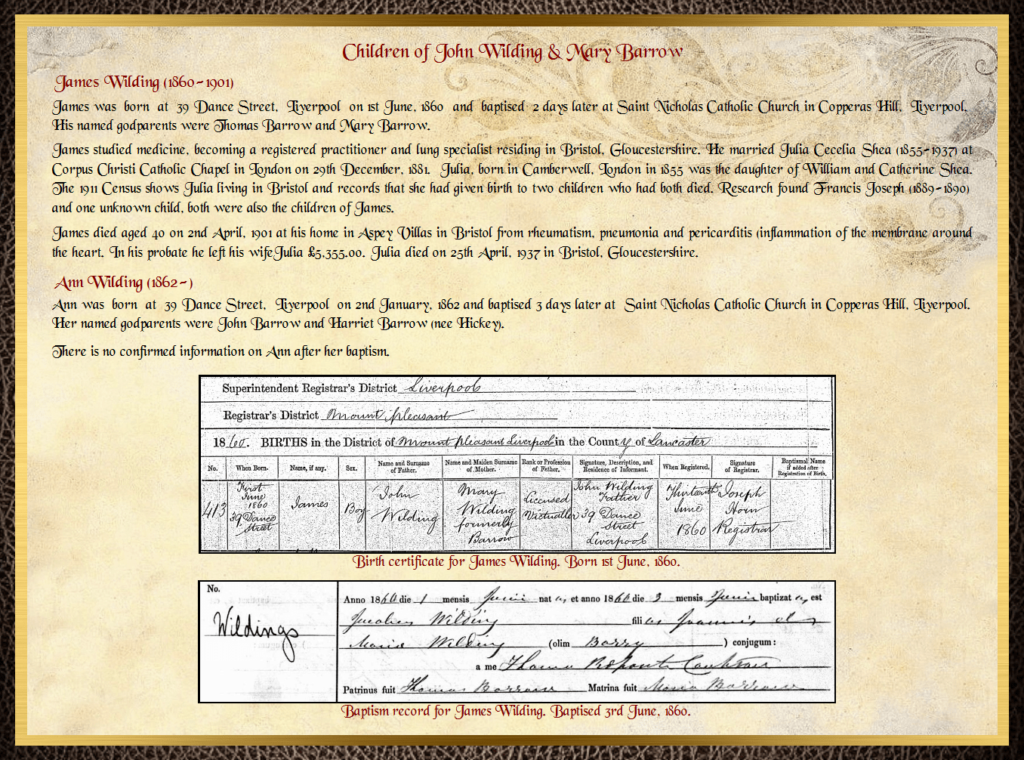 Children of John Wilding & Mary Barrow
James Wilding (1860-1901)
James was born at 39 Dance Street, Liverpool on 1st June, 1860 and baptised 2 days later at Saint Nicholas Catholic Church in Copperas Hill, Liverpool.
His named godparents were Thomas Barrow and Mary Barrow.
James studied medicine, becoming a registered practitioner and lung specialist residing in Bristol, Gloucestershire. He married Julia Cecelia Shea (1855-1937) at
Corpus Christi Catholic Chapel in London on 29th December, 1881. Julia, born in Camberwell, London in 1855 was the daughter of William and Catherine Shea.
The 1911 Census shows Julia living in Bristol and records that she had given birth to two children who had both died. Research found Francis Joseph (1889-1890)
and one unknown child, both were also the children of James.
James died aged 40 on 2nd April, 1901 at his home in Aspey Villas in Bristol from rheumatism, pneumonia and pericarditis (inflammation of the membrane around
the heart. In his probate he left his wife Julia £5,355.00. Julia died on 25th April, 1937 in Bristol, Gloucestershire.
Ann Wilding (1862-)
Ann was born at 39 Dance Street, Liverpool on 2nd January, 1862 and baptised 3 days later at Saint Nicholas Catholic Church in Copperas Hill, Liverpool.
Her named godparents were John Barrow and Harriet Barrow (nee Hickey).
There is no confirmed information on Ann after her baptism.
Superintendent Registrar's District Liverpool
Registrar's District Mount pleasant
1860. BIRTHS in the District of Mount pleasant Liverpool in the County of Lancaster
No. When Born. Name, if any. Sex. Name and Surname of Father. Name and Maiden Surname of Mother. Rank or Profession of Father. Signature, Description, and Residence of Informant. When Registered. Signature of Registrar. Baptismal Name if added after Registration of Birth.
413 First June 1860 39 Dance Street James Boy John Wilding Mary Wilding formerly Barrow Licensed Victualler John Wilding Father 39 Dance Street Liverpool Thirteenth June 1860 Joseph Horn Registrar
Birth certificate for James Wilding. Born 1st June, 1860.
No.
Wildings
Anno 1860 die 1 mensis Junii nat us, et anno 1860 die 3 mensis Junii baptizat us, est
Jacobus Wilding fili us Joannis et
Maria Wilding (olim Barry) conjugum:
a me Thoma
Patrinus fuit Thomas Barrow Matrina fuit Maria Barrow
Baptism record for James Wilding. Baptised 3rd June, 1860.